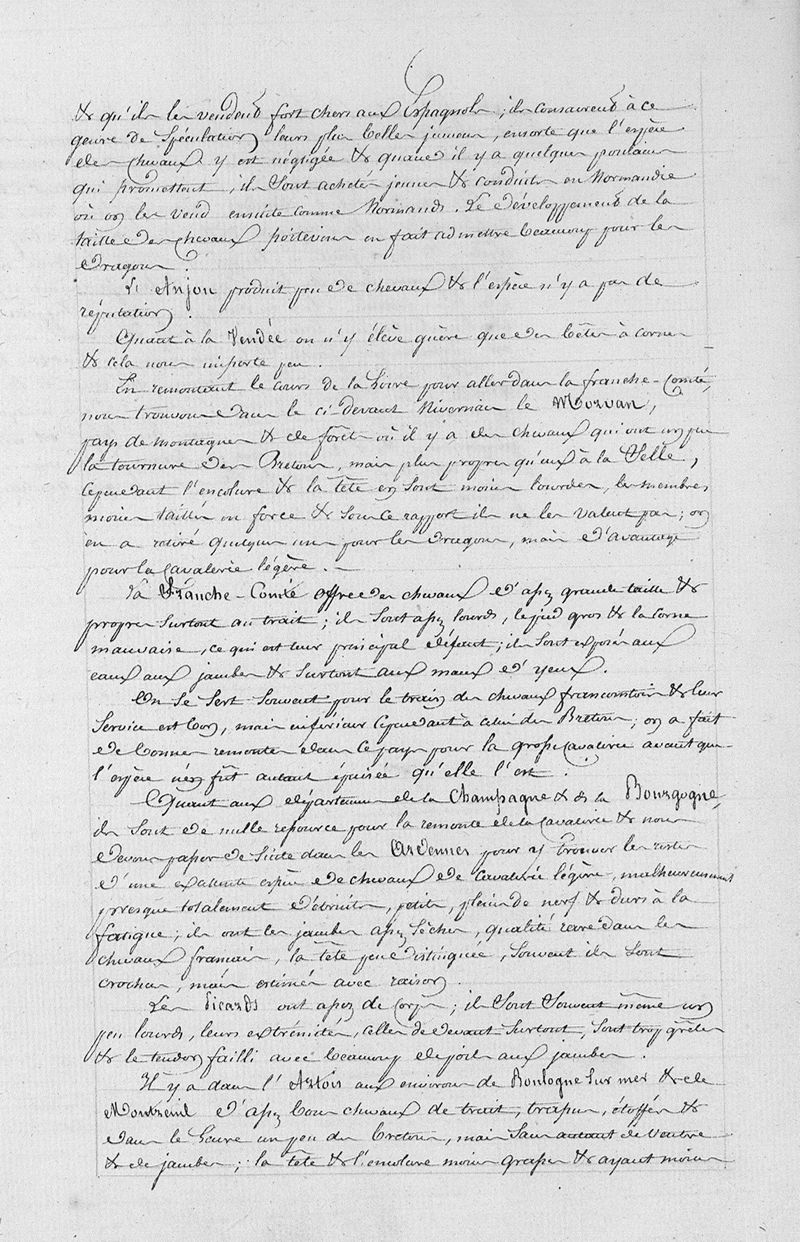 & qu'ils les vendent fort chers aux Espagnols, ils consacrent à ce
genre de spéculation leurs plus belles jumens, ensorte que l'espèce
des chevaux y est négligée & quand il y a quelques poulains
qui promettent, ils sont achetés jeunes & conduits en Normandie
où on les vend ensuite comme Normands. Le développement de la
taille des chevaux poitevins en fait admettre beaucoup pour les
dragons.
L'Anjou produit peu de chevaux & l'espèce n'y a pas de
réputation.
Quant à la Vendée on n'y élève guère que des bêtes à cornes
& cela nous importe peu.
En remontant le cours de la Loire pour aller dans la franche-Comté,
nous trouvons dans le ci-devant Nivernais le Morvan,
pays de montagnes & de forêts où il y a des chevaux qui ont un peu
la tournure des Bretons, mais plus propres qu'eux à la selle,
cependant l'encolure & la tête en sont moins lourdes, les membres
moins taillés en force & sous ce rapport ils ne les valent pas; on
en a retiré quelques uns pour les dragons, mais d'avantage
pour la cavalerie légère. —
La Franche-Comté offre des chevaux d'assez grande taille &
propres surtout au trait; ils sont assez lourds, le pied gros & la corne
mauvaise, ce qui est leur principal défaut; ils sont exposés aux
eaux aux jambes & surtout aux maux d'yeux.
On se sert souvent pour le train des chevaux francomtois & leur
service est bon, mais inférieur cependant à celui des Bretons; on a fait
de bonnes remontes dans ce pays pour la grosse cavalerie avant que
l'espèce n'en fût autant épuisée qu'elle l'est.
Quant aux départemens de la Champagne & de la Bourgogne,
ils sont de nulle ressource pour la remonte de la cavalerie & nous
devons passer de suite dans les Ardennes pour y trouver les restes
d'une excellente espèce de chevaux de cavalerie légère, malheureusement
presque totalement détruite, petits, pleins de nerf & durs à la
fatigue; ils ont les jambes assez sèches, qualité rare dans les
chevaux français, la tête peu distinguée, souvent ils sont
crochus, mais estimés avec raison.
Les Picards ont assez de corps; ils sont souvent même un
peu lourds, leurs extrémités, celles de devant surtout, sont trop grêles
& le tendon failli avec beaucoup de poil aux jambes.
Il y a dans l'Artois aux environs de Boulogne sur mer & de
Montreuil d'assez bons chevaux de trait, trapus, étoffés &
dans le genre un peu des bretons, mais sans autant de ventre
& de jambes; la tête & l'encolure moins grasses & ayant moins